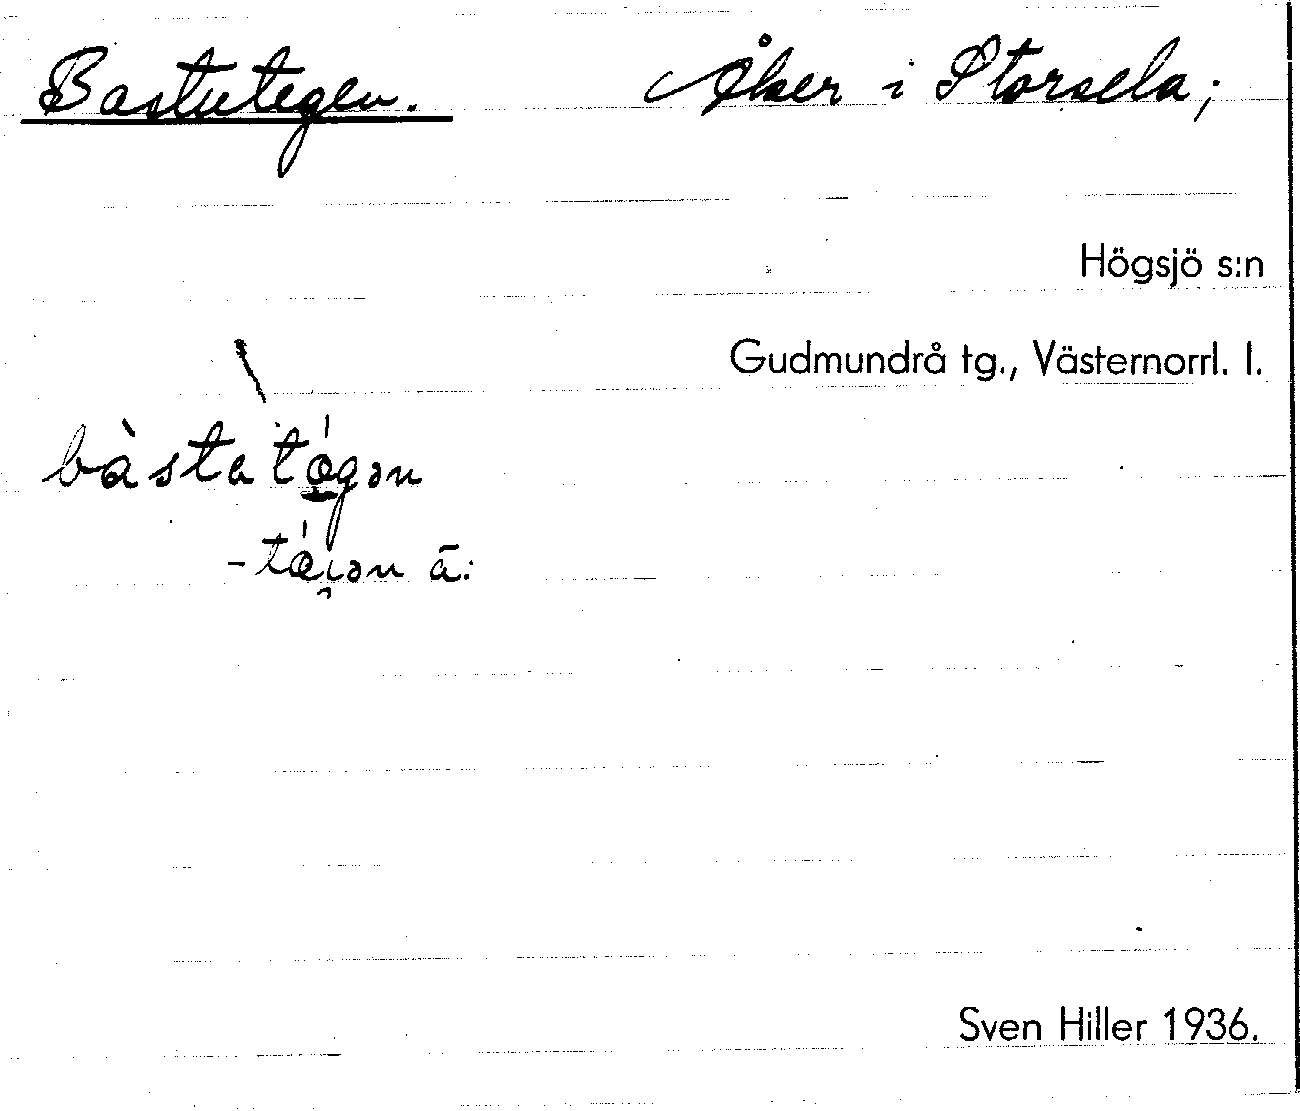 Bastutegen. Åker i Storsela;
Högsjö s:n
Gudmundrå tg., Västernorrl. l.
bàsta tǽgən
-tǽi̯ən ā:
Sven Hiller 1936.